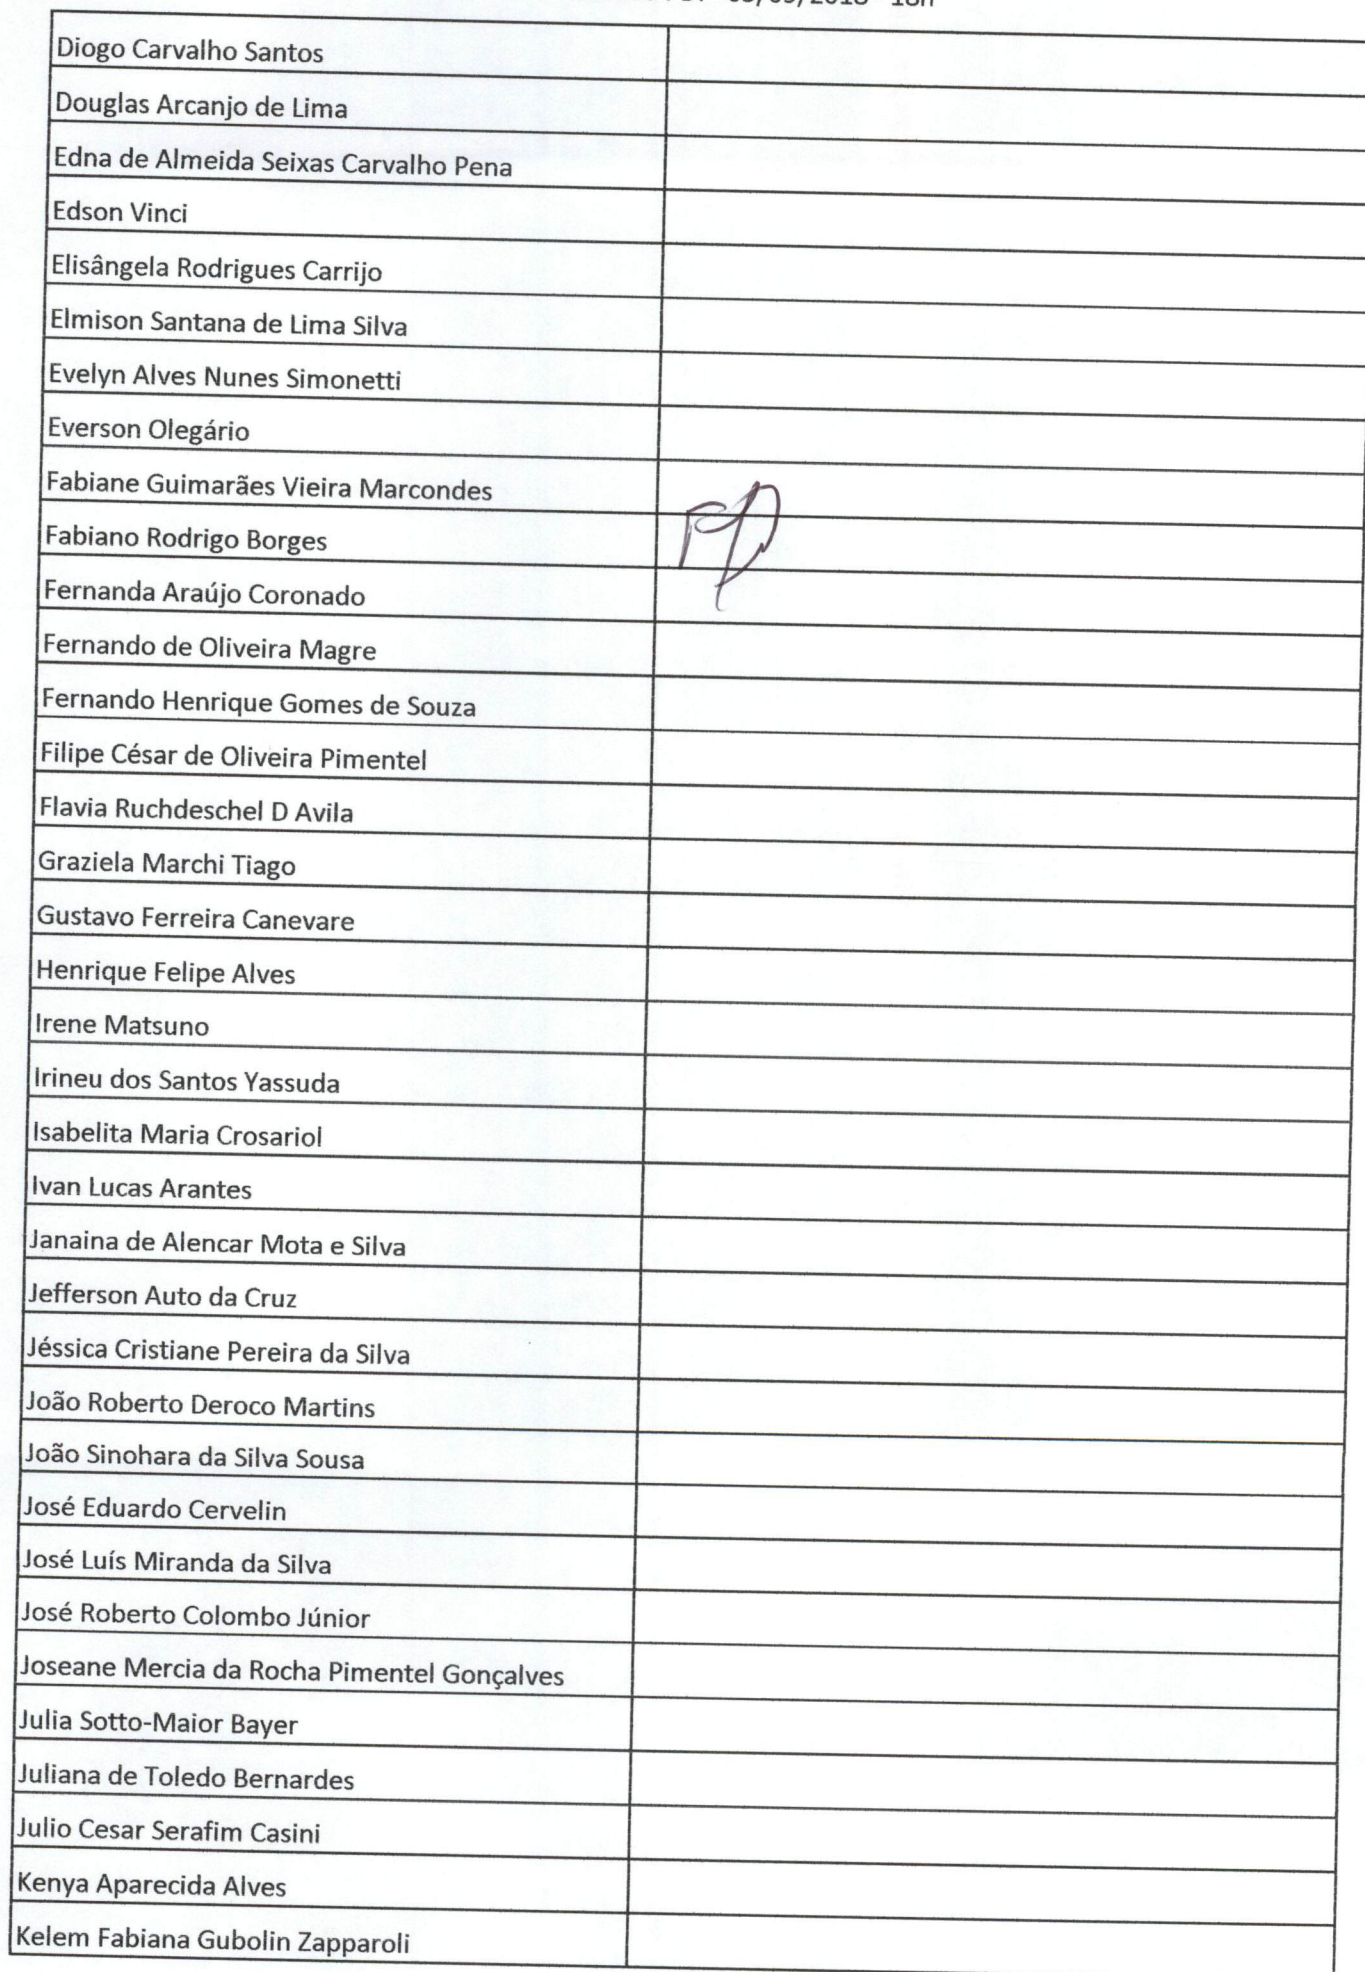 Diogo Carvalho Santos
Douglas Arcanjo de Lima
Edna de Almeida Seixas Carvalho Pena
Edson Vinci
Elisângela Rodrigues Carrijo
Elmison Santana de Lima Silva
Evelyn Alves Nunes Simonetti
Everson Olegário
Fabiane Guimarães Vieira Marcondes
Fabiano Rodrigo Borges
Fernanda Araújo Coronado
Fernando de Oliveira Magre
Fernando Henrique Gomes de Souza
Filipe César de Oliveira Pimentel
Flavia Ruchdeschel D Avila
Graziela Marchi Tiago
Gustavo Ferreira Canevare
Henrique Felipe Alves
Irene Matsuno
Irineu dos Santos Yassuda
Isabelita Maria Crosariol
Ivan Lucas Arantes
Janaina de Alencar Mota e Silva
Jefferson Auto da Cruz
Jéssica Cristiane Pereira da Silva
João Roberto Deroco Martins
João Sinohara da Silva Sousa
José Eduardo Cervelin
José Luís Miranda da Silva
José Roberto Colombo Júnior
Joseane Mercia da Rocha Pimentel Gonçalves
Julia Sotto-Maior Bayer
Juliana de Toledo Bernardes
Julio Cesar Serafim Casini
Kenya Aparecida Alves
Kelem Fabiana Gubolin Zapparoli